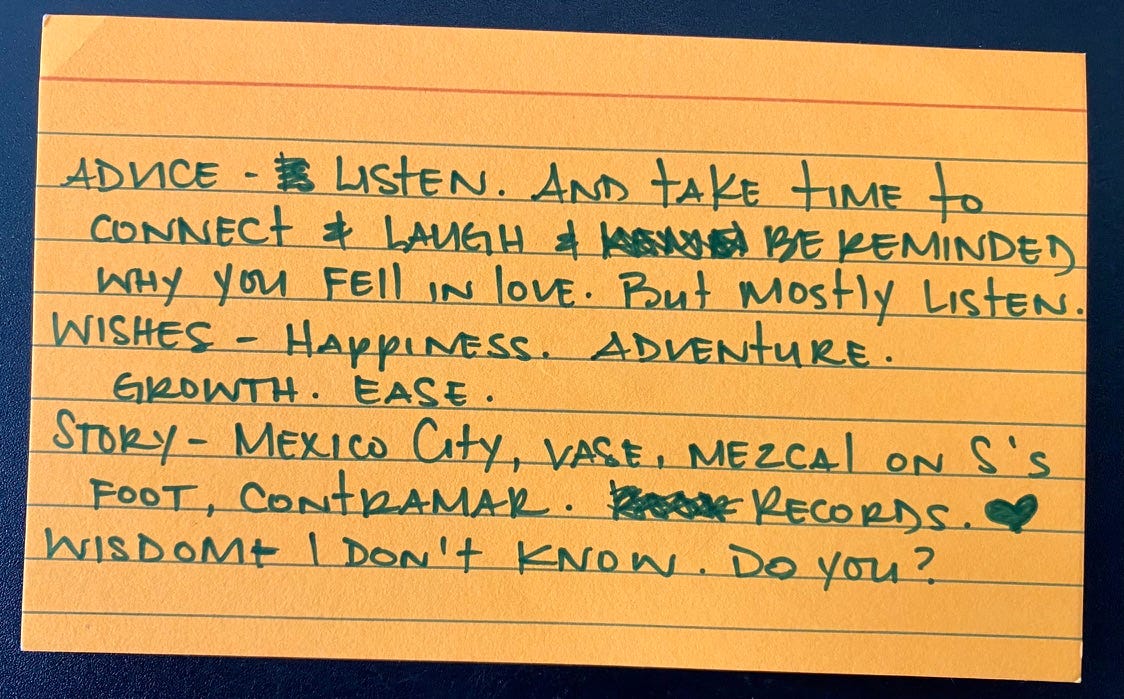 ADVICE - LISTEN. AND TAKE TIME TO
CONNECT & LAUGH & BE REMINDED
WHY YOU FELL IN LOVE. BUT MOSTLY LISTEN.
WISHES - HAPPINESS. ADVENTURE.
GROWTH. EASE.
STORY - MEXICO CITY, VASE, MEZCAL ON S'S
FOOT, CONTRAMAR. RECORDS. ♥
WISDOM - I DON'T KNOW. DO YOU?